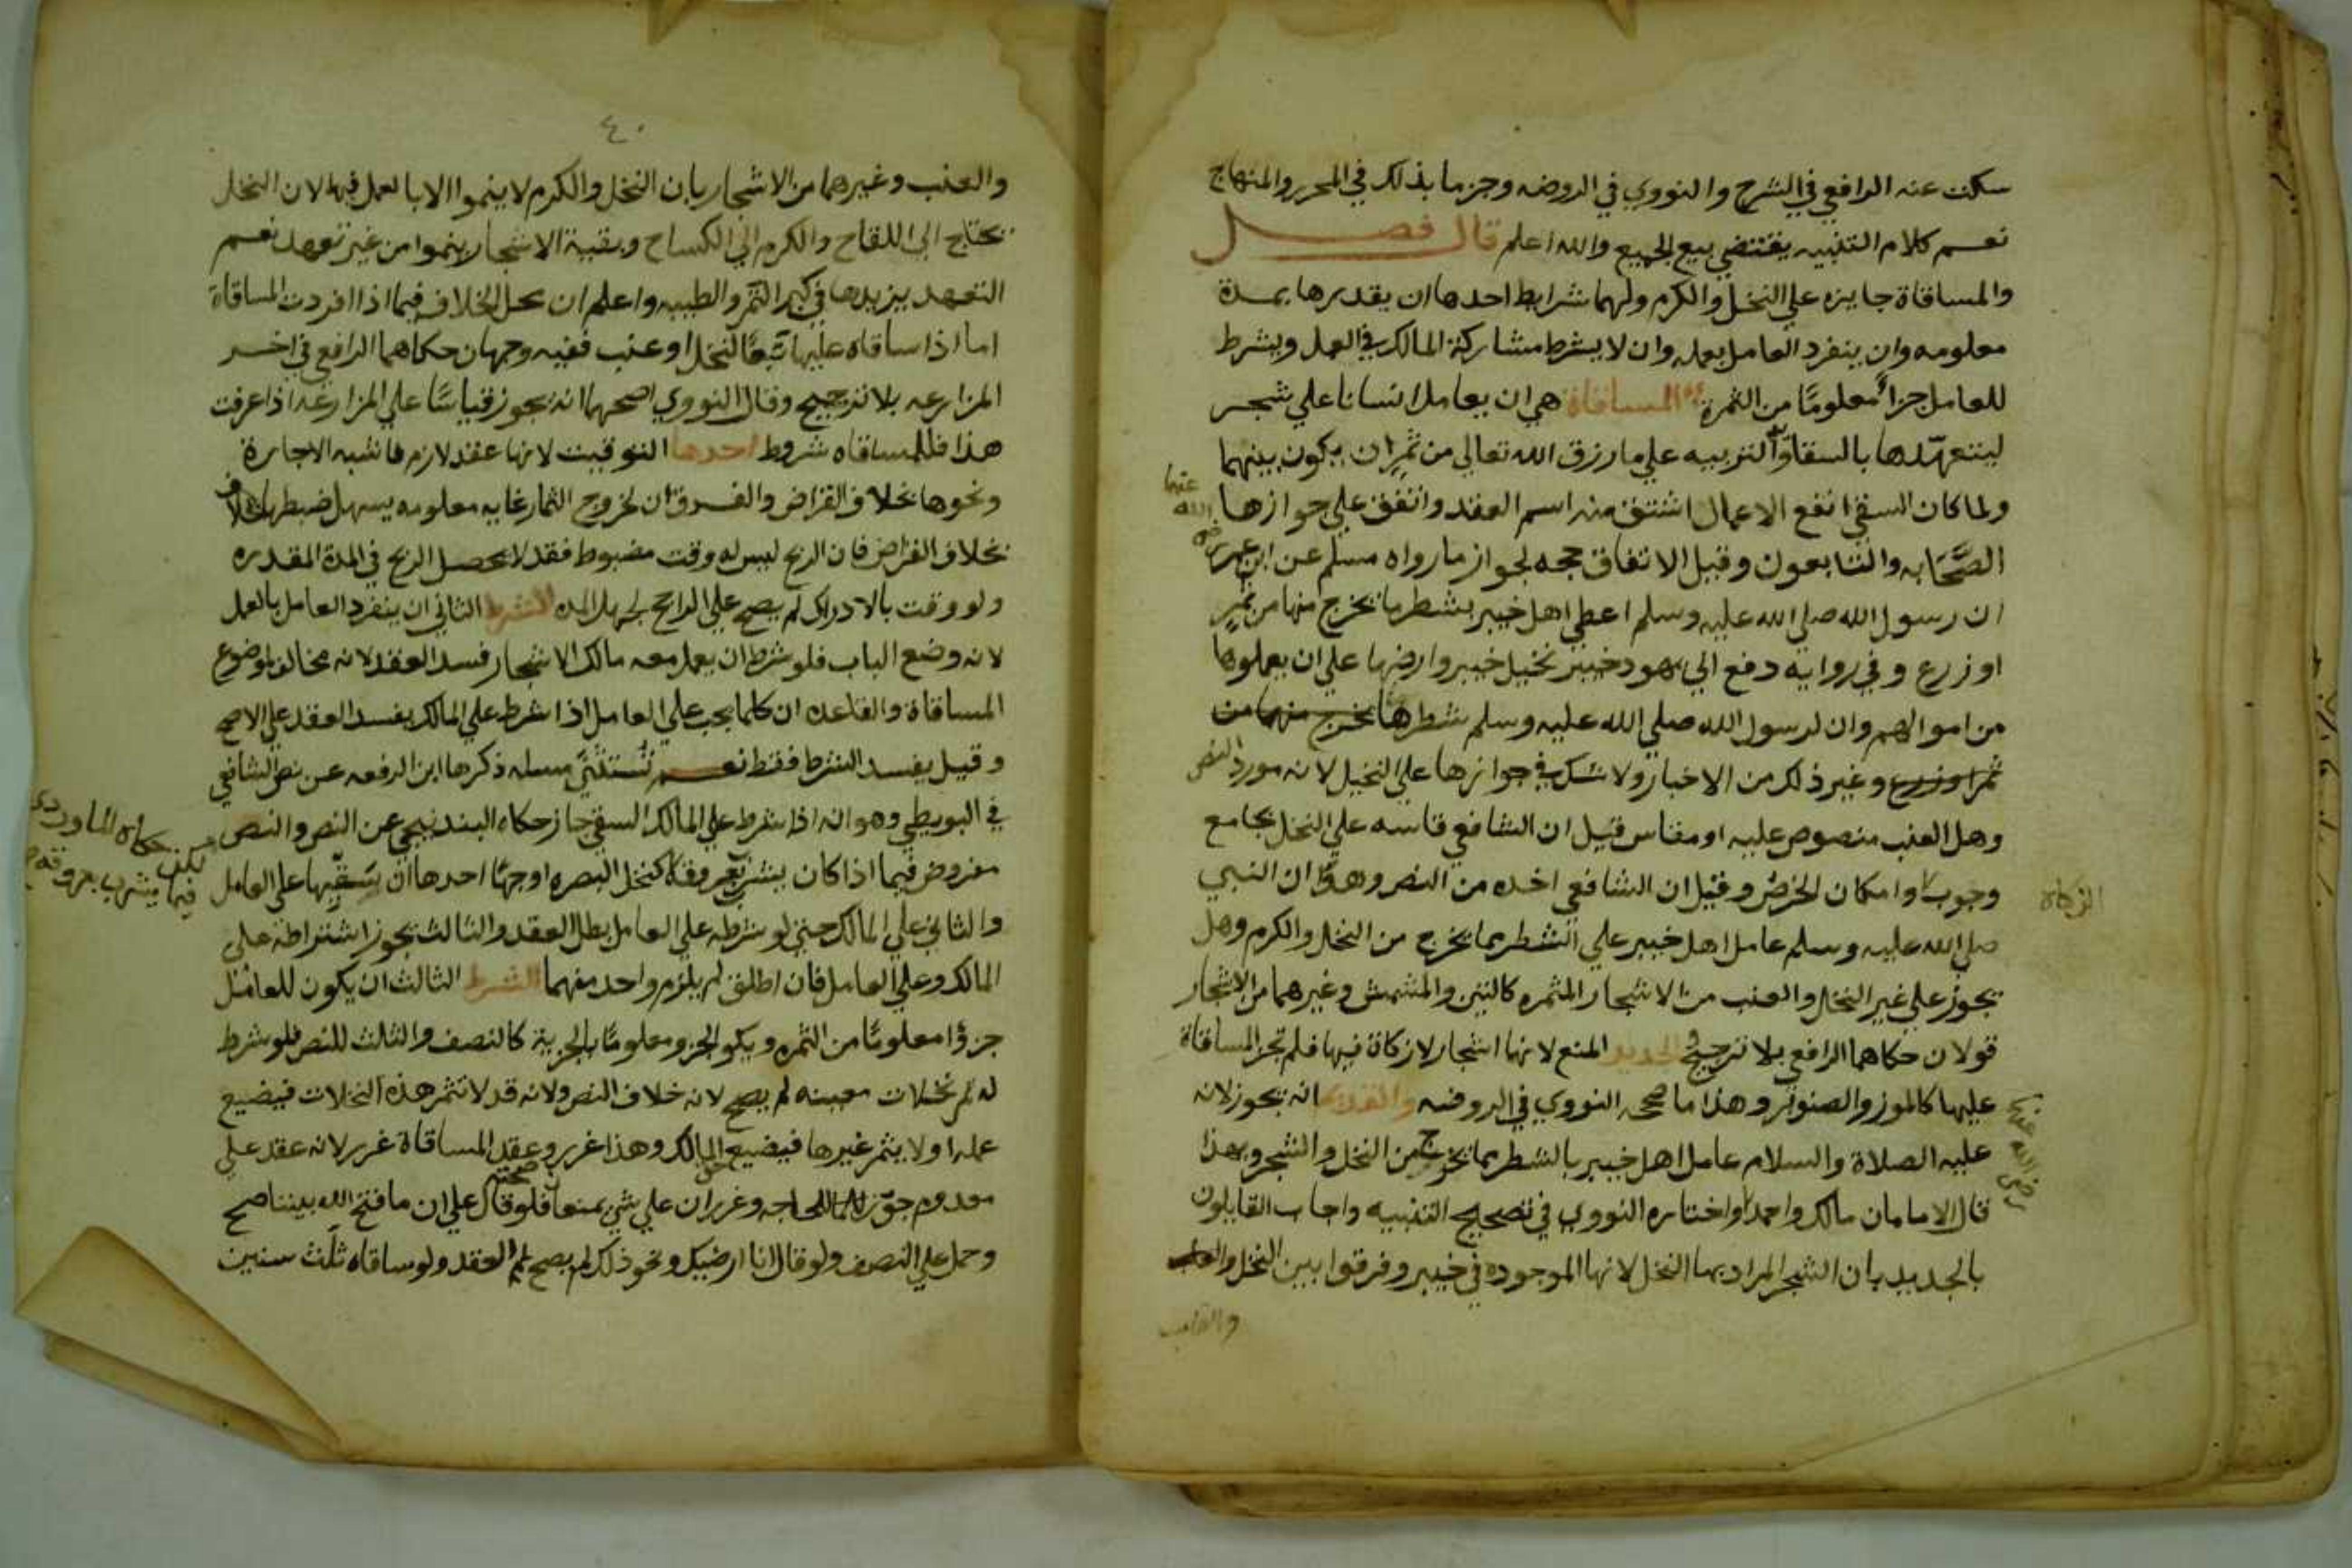 سكت عنه الرافعي في الشرح والنووي في الروضه وجزما بذلك في المحرر والمنهاج
نعم كلام التنبيه يقتضي بيع الجميع والله اعلم قال فصل
والمساقاة جايزه علي النخل والكرم ولهما شرايط احدها ان يقدرها بمدة
معلومه وان ينفرد العامل بعمله وان لا يشرط مشاركة المالك في العمل ويشرط
للعامل جزأ معلومًا من الثمرة المساقاة هي ان يعامل انسانا علي شجر
ليتعهّدها بالسقاو التربيه علي ما رزق الله تعالي من ثمر ان يكون بينهما
ولما كان السقي انفع الاعمال اشتق منه اسم العقد واتفق علي جوازها
الصَّحَابه والتابعون وقبل الاتفاق حجه لجواز ما رواه مسلم عن ابن عمر
رضي الله عنهما
ان رسول الله صلي الله عليه وسلم اعطي اهل خيبر بشطر ما يخرج منها من ثمرٍ
او زرع وفي روايه دفع الي يهود خيبر نخيل خيبر وارضها علي ان يعملوها
من اموالهم وان لرسول الله صلي الله عليه وسلم شطرها يخرج منهما من
ثمر او زرع وغير ذلك من الاخبار ولا شك في جوازها علي النخيل لانه مورد النص
وهل العنب منصوص عليه او مقاس قيل ان الشافعي قاسه علي النخل بجامع
وجوب وامكان الخرص وقيل ان الشافعي اخده من النص وهو ان النبي
الزكاة
صلي الله عليه وسلم عامل اهل خيبر علي الشطر بما يخرج من النخل والكرم وهل
يجوز علي غير النخل والعنب من الاشجار المثمره كالتين والمشمش وغيرهما من الاشجار
قولان حكاهما الرافعي بلا ترجيح الجديد المنع لانها اشجار لا زكاة فيها فلم تجز المساقاة
عليها كالموز والصنوبر وهذا ما صححه النووي في الروضه والقديم انه يجوز لانه
عليه الصلاة والسلام عامل اهل خيبر بالشطر بما يخرج من النخل والشجر وبهذا
قال الامامان مالك واحمد واختاره النووي في تصحيح التنبيه واجاب القايلون
رضي الله عنهما
بالجديد بان الشجر المراد بها النخل لانها الموجوده في خيبر وفرقوا بين النخل
والعنب
٤٠
والعنب وغيرهما من الاشجار بان النخل والكرم لا ينموا الا بالعمل فيها لان النخل
يحتاج الي اللقاح والكرم الي الكساح وبقية الاشجار ينموا من غير تعهد نعم
التعهد يزيدها في كبر الثمر والطيبه واعلم ان محل الخلاف فيما اذا افردت المساقاة
اما اذا ساقاه عليها تبعًا لنخل او عنب ففيه وجهان حكاهما الرافعي في اخر
المزارعه بلا ترجيح وقال النووي اصحهما انه يجوز قياسًا علي المزارعه اذا عرفت
هذا فللمساقاه شروط احدها التوقيت لانها عقد لازم فاشبه الاجارة
ونحوها بخلاف القراض والفرق ان لخروج الثمار غايه معلومه يسهل ضبطها بخلاف
بخلاف القراض فان الربح ليس له وقت مضبوط فقد لا يحصل الربح في المدة المقدره
ولو وقت بالادراك لم يصح علي الراجح لجهل المده الشرط الثاني ان ينفرد العامل بالعمل
لانه وضع الباب فلو شرط ان يعمل معه مالك الاشجار فسد العقد لانه مخالف لموضوع
المساقاة والقاعده ان كلما يجب علي العامل اذا شرط علي المالك يفسد العقد علي الاصح
وقيل يفسد الشرط فقط نعم تُستثنَي مسله ذكرها ابن الرفعه عن نص الشافعي
في البويطي وهو انه اذا شرط علي المالك السقي جاز حكاه البندنيجي عن النص والنص
لكن حكاه الماوردي
فيما يشرب بعروقه
مفروض فيما اذا كان يشرب بعروقه كنخل البصره اوجهًا احدها ان سقيها علي العامل
والثاني علي المالك حتي لو شرطه علي العامل بطل العقد والثالث يجوز اشتراطه علي
المالك وعلي العامل فان اطلق لم يلزم واحد منهما الشرط الثالث ان يكون للعامل
جزؤا معلومًا من الثمره ويكو الجزو معلومًا بالجزية كالنصف والثلث للنص فلو شرط
له ثمر نخلات معينه لم يصح لانه خلاف النص ولانه قد لا تثمر هذه النخلات فيضيع
عمله او لا يثمر غيرها فيضيع المالك وهذا غرر وعقد المساقاة غرر لانه عقد علي
معدوم جوّز للحاجه وغرران علي شي يمنع صحته فلو قال علي ان ما فتح الله بيننا صح
وحمل علي النصف ولو قال انا ارضيك ونحو ذلك لم يصح العقد ولو ساقاه ثلث سنين